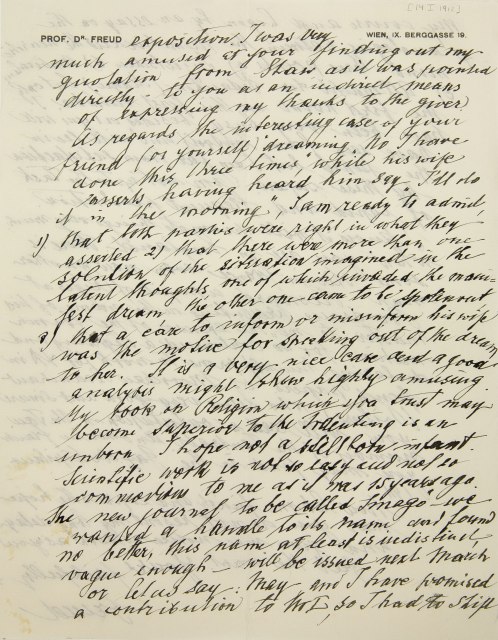 [14 I 1911]
PROF. DR. FREUD
WIEN, IX. BERGGASSE 19.
exposition. I was very
much amused at your finding out my
quotation from Shaw as it was pointed
directly to you as an indirect means
of expressing my thanks to the giver)
As regards the interesting case of your
friend (or yourself) dreaming "No I have
done this three times," while his wife
asserts having heard him say "I'll do
it in the morning", I am ready to admit,
1) that both parties were right in what they
asserted 2) that there were more than one
solution of the situation imagined in the
latent thoughts one of which invaded the mani-
fest dream the other one came to be spoken out
3) that a care to inform or misinform his wife
was the motive for speaking out of the dream
to her. It is a very nice case and a good
analysis might show highly amusing.
My book on Religion which you trust may
become superior to the is an
unborn I hope not a stillborn infant.
Scientific work is not so easy and not so
to me as it was 15 years ago.
The new journal to be called "Imago" we
wanted a handle to its name and found
no better, this name at least is indistinct,
vague enough will be issued next March
or let us say: May and I have promised
a contribution to No I, so I had to